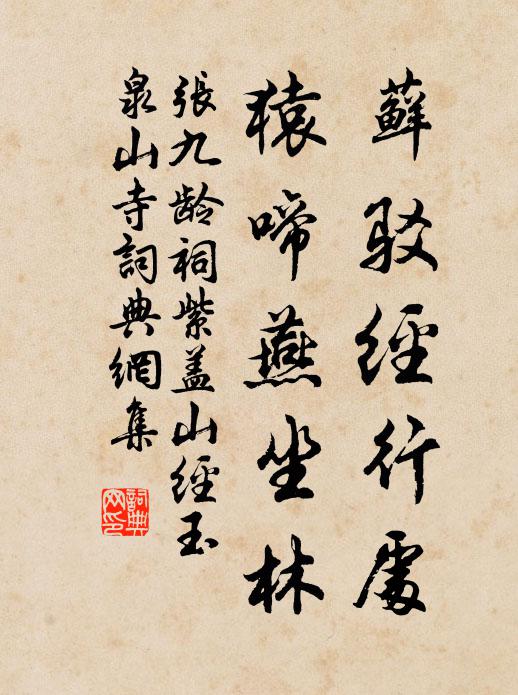 蘚駁經行處
猿啼燕坐林
張九齡祠紫蓋山經玉
泉山寺詞典網集
詞典
网印